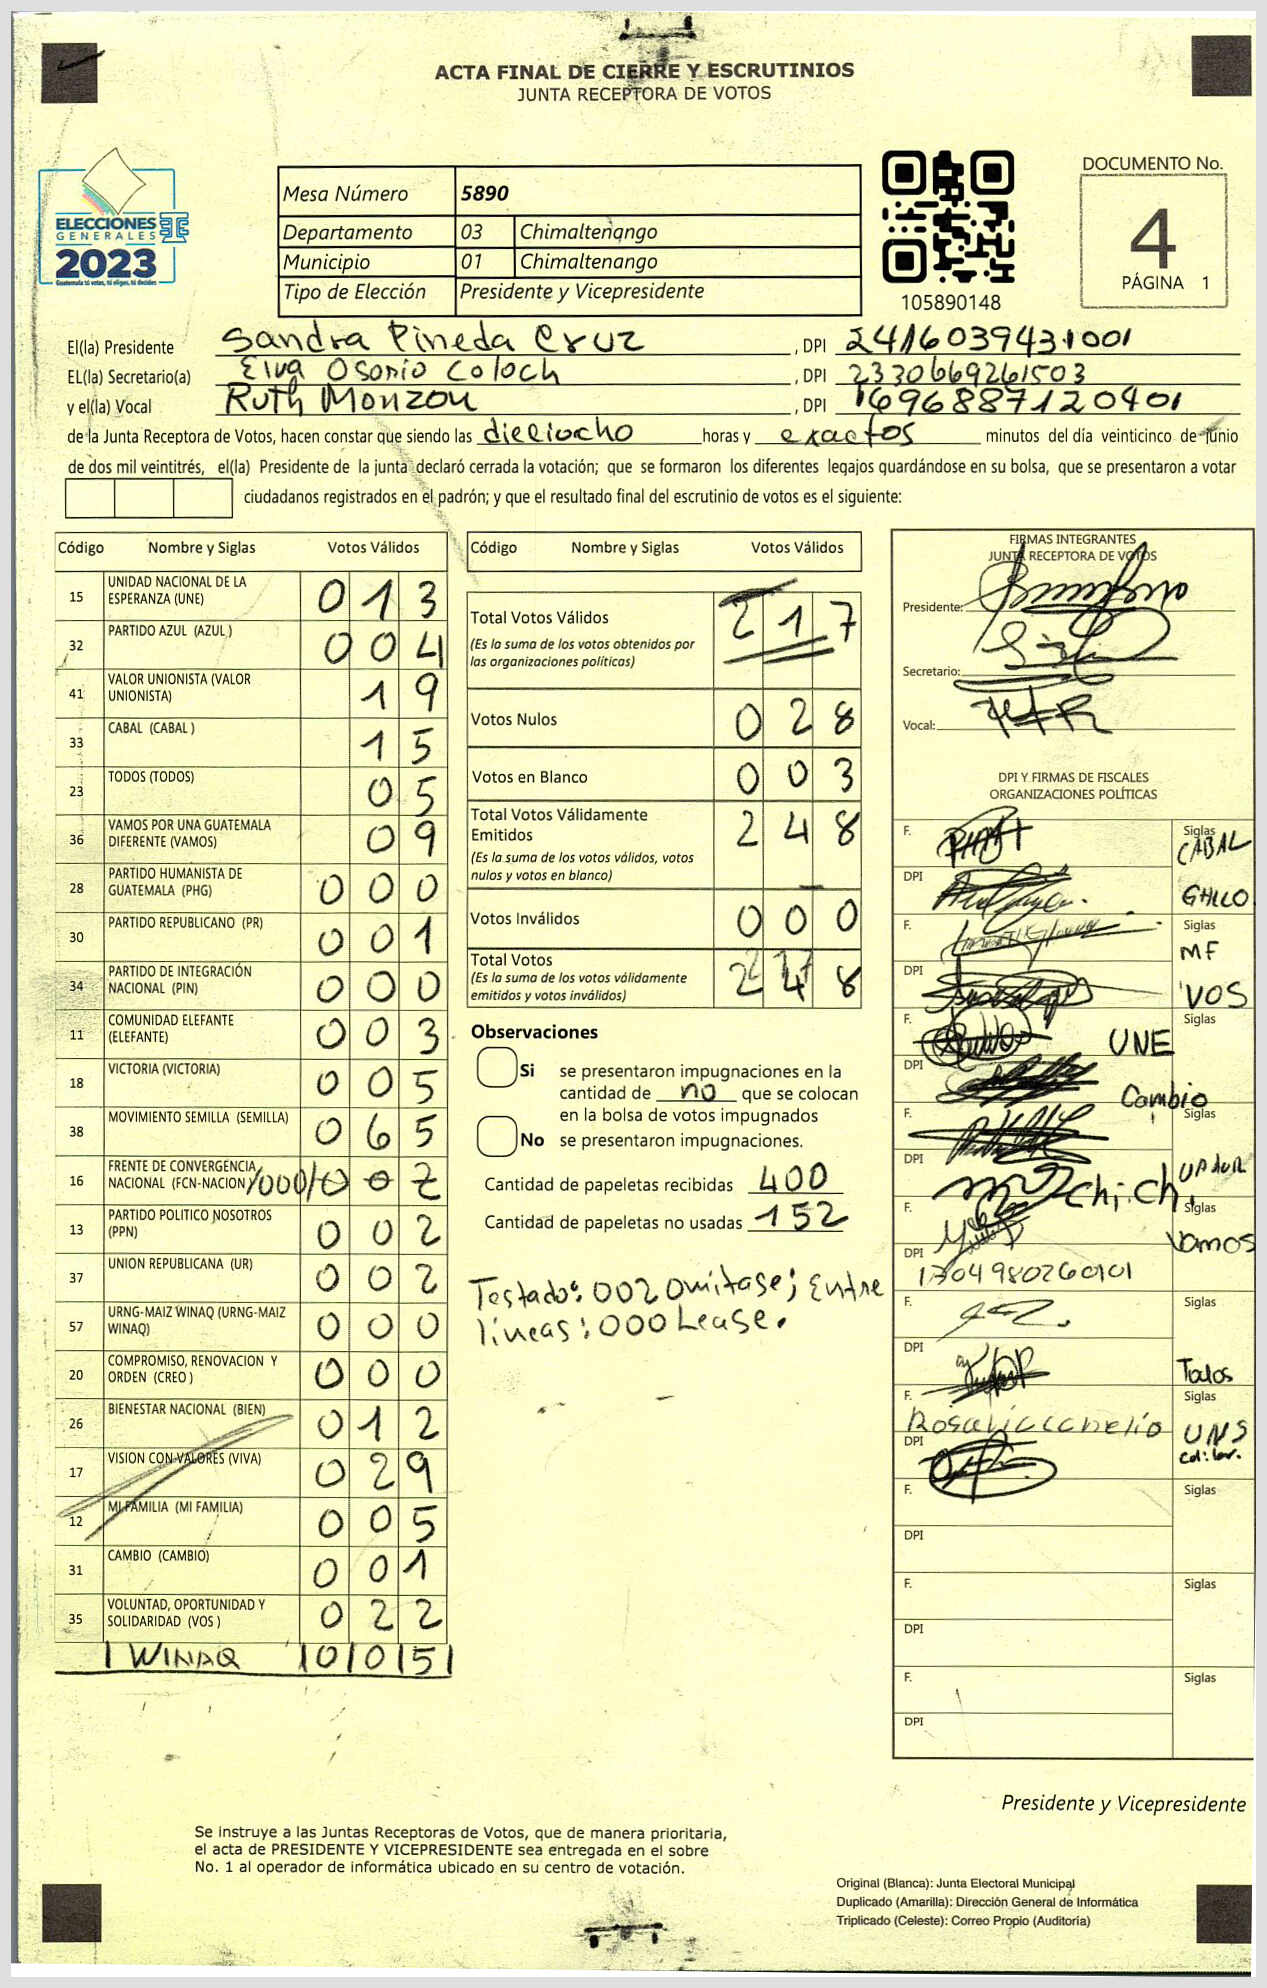 ACTA FINAL DE CIERRE Y ESCRUTINIOS
JUNTA RECEPTORA DE VOTOS
ELECCIONES
GENERALES
2023
Guatemala tú votas, tú eliges, tú decides
Mesa Número 5890
Departamento 03 Chimaltenango
Municipio 01 Chimaltenango
Tipo de Elección Presidente y Vicepresidente
105890148
DOCUMENTO No.
4
PÁGINA 1
El(la) Presidente Sandra Pineda Cruz , DPI 2416039431001
EL(la) Secretario(a) Elva Osorio Coloch , DPI 2330669261503
y el(la) Vocal Ruth Monzon , DPI 1696887120401
de la Junta Receptora de Votos, hacen constar que siendo las dieciocho horas y exactos minutos del día veinticinco de junio
de dos mil veintitrés, el(la) Presidente de la junta declaró cerrada la votación; que se formaron los diferentes legajos quardándose en su bolsa, que se presentaron a votar
ciudadanos registrados en el padrón; y que el resultado final del escrutinio de votos es el siguiente:
Código Nombre y Siglas Votos Válidos
15 UNIDAD NACIONAL DE LA ESPERANZA (UNE) 013
32 PARTIDO AZUL (AZUL ) 004
41 VALOR UNIONISTA (VALOR UNIONISTA) 19
33 CABAL (CABAL ) 15
23 TODOS (TODOS) 05
36 VAMOS POR UNA GUATEMALA DIFERENTE (VAMOS) 09
28 PARTIDO HUMANISTA DE GUATEMALA (PHG) 000
30 PARTIDO REPUBLICANO (PR) 001
34 PARTIDO DE INTEGRACIÓN NACIONAL (PIN) 000
11 COMUNIDAD ELEFANTE (ELEFANTE) 003
18 VICTORIA (VICTORIA) 005
38 MOVIMIENTO SEMILLA (SEMILLA) 065
16 FRENTE DE CONVERGENCIA NACIONAL (FCN-NACION) /000/ 002
13 PARTIDO POLITICO NOSOTROS (PPN) 002
37 UNION REPUBLICANA (UR) 002
57 URNG-MAIZ WINAQ (URNG-MAIZ WINAQ) 000
20 COMPROMISO, RENOVACION Y ORDEN (CREO ) 000
26 BIENESTAR NACIONAL (BIEN) 012
17 VISION CON VALORES (VIVA) 029
12 MI FAMILIA (MI FAMILIA) 005
31 CAMBIO (CAMBIO) 001
35 VOLUNTAD, OPORTUNIDAD Y SOLIDARIDAD (VOS ) 022
WINAQ 005
Código Nombre y Siglas Votos Válidos
Total Votos Válidos 217
(Es la suma de los votos obtenidos por
las organizaciones políticas)
Votos Nulos 028
Votos en Blanco 003
Total Votos Válidamente Emitidos 248
(Es la suma de los votos válidos, votos
nulos y votos en blanco)
Votos Inválidos 000
Total Votos 248
(Es la suma de los votos válidamente
emitidos y votos inválidos)
Observaciones
Si se presentaron impugnaciones en la
cantidad de no que se colocan
en la bolsa de votos impugnados
No se presentaron impugnaciones.
Cantidad de papeletas recibidas 400
Cantidad de papeletas no usadas 152
Testado: 002 Omitase; Entre
líneas: 000 Lease.
FIRMAS INTEGRANTES
JUNTA RECEPTORA DE VOTOS
Presidente:
Secretario:
Vocal:
DPI Y FIRMAS DE FISCALES
ORGANIZACIONES POLÍTICAS
F. Siglas CABAL
DPI
F. Siglas MF
DPI VOS
F. Siglas UNE
DPI Cambio
F. Siglas
DPI Chich.
F. Siglas Vamos
DPI 1304980260101
F. Siglas
DPI Todos
F. Siglas UNS
DPI
F. Siglas
DPI
F. Siglas
DPI
F. Siglas
DPI
Presidente y Vicepresidente
Se instruye a las Juntas Receptoras de Votos, que de manera prioritaria,
el acta de PRESIDENTE Y VICEPRESIDENTE sea entregada en el sobre
No. 1 al operador de informática ubicado en su centro de votación.
Original (Blanca): Junta Electoral Municipal
Duplicado (Amarilla): Dirección General de Informática
Triplicado (Celeste): Correo Propio (Auditoría)